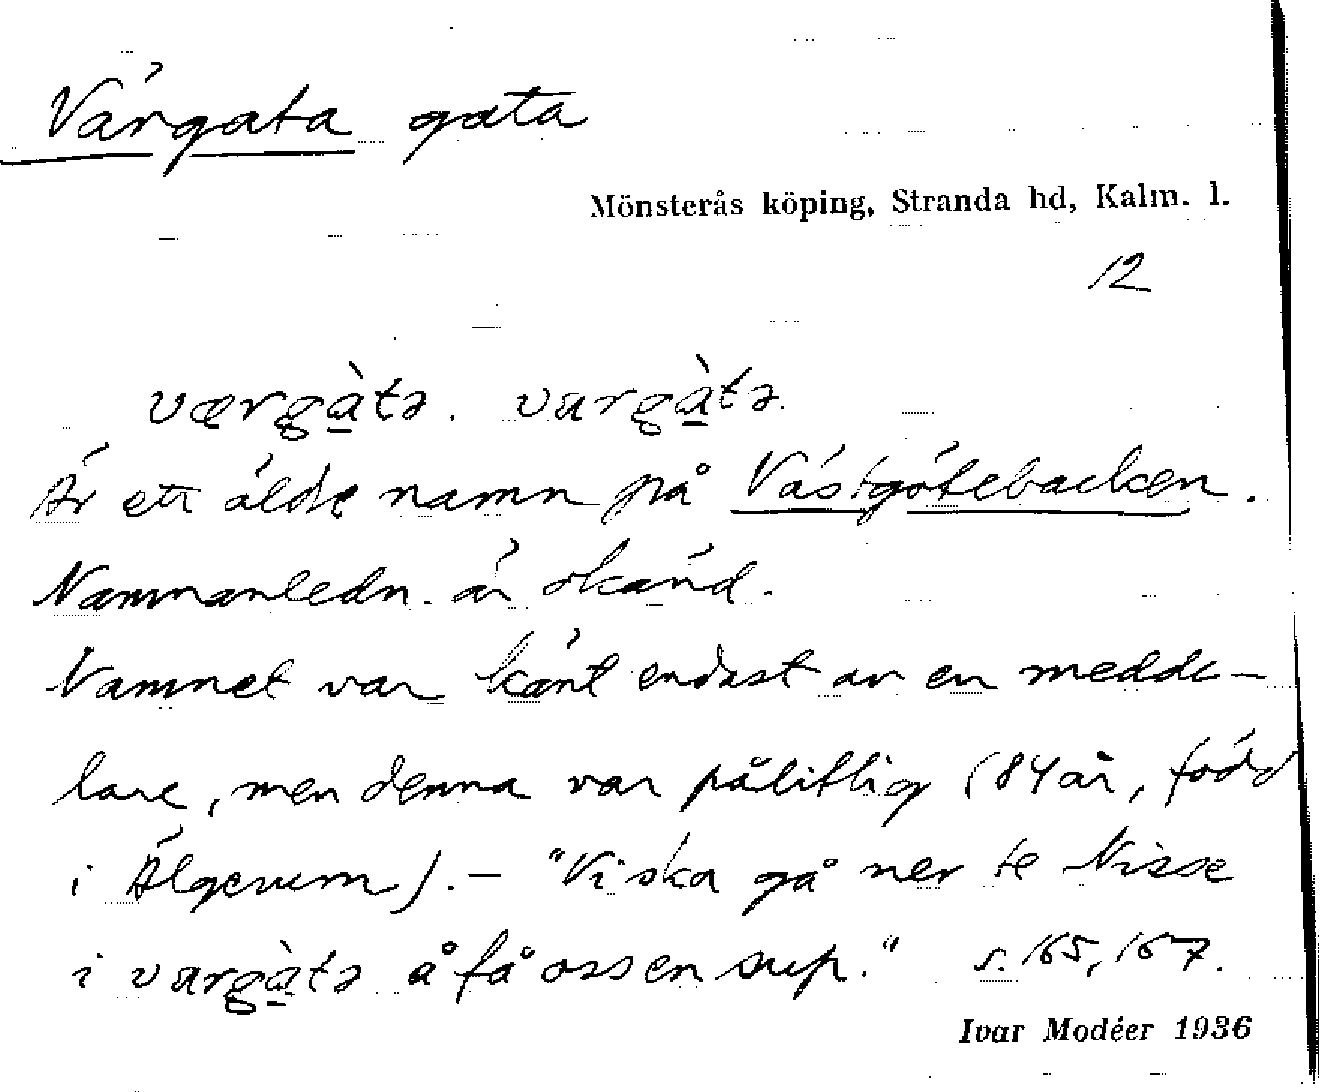 Värgata gata
Mönsterås köping, Stranda hd, Kalm. l.
12
værgàtə. vargàtə.
Är ett äldre namn på Västgötebacken.
Namnanledn. är okänd.
Namnet var känt endast av en medde-
lare, men denna var pålitlig (84 år, född
i Älgerum). – "Vi ska gå ner te Nisse
i vargàtə å få oss en sup." s. 165, 167.
Ivar Modéer 1936